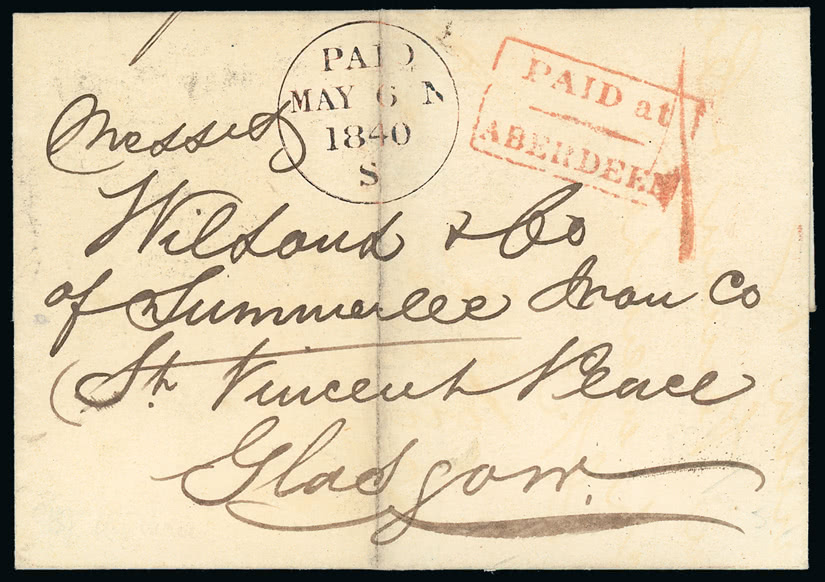 PAID
MAY 6 N
1840
S
PAID at
ABERDEEN
1
Messrs
Wilsons & Co
of Summerlee Iron Co
St. Vincent Place
Glasgow.